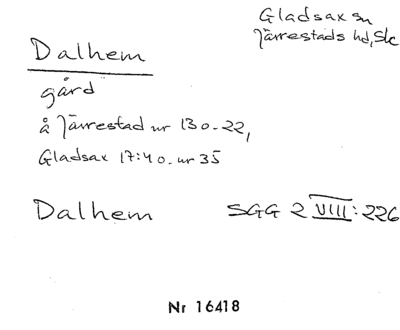 Gladsax sn
Järrestads hd, Sk
Dalhem
gård
å Järrestad nr 130-22,
Gladsax 17:40. nr 35
Dalhem SGG 2 VIII: 226
Nr 16418